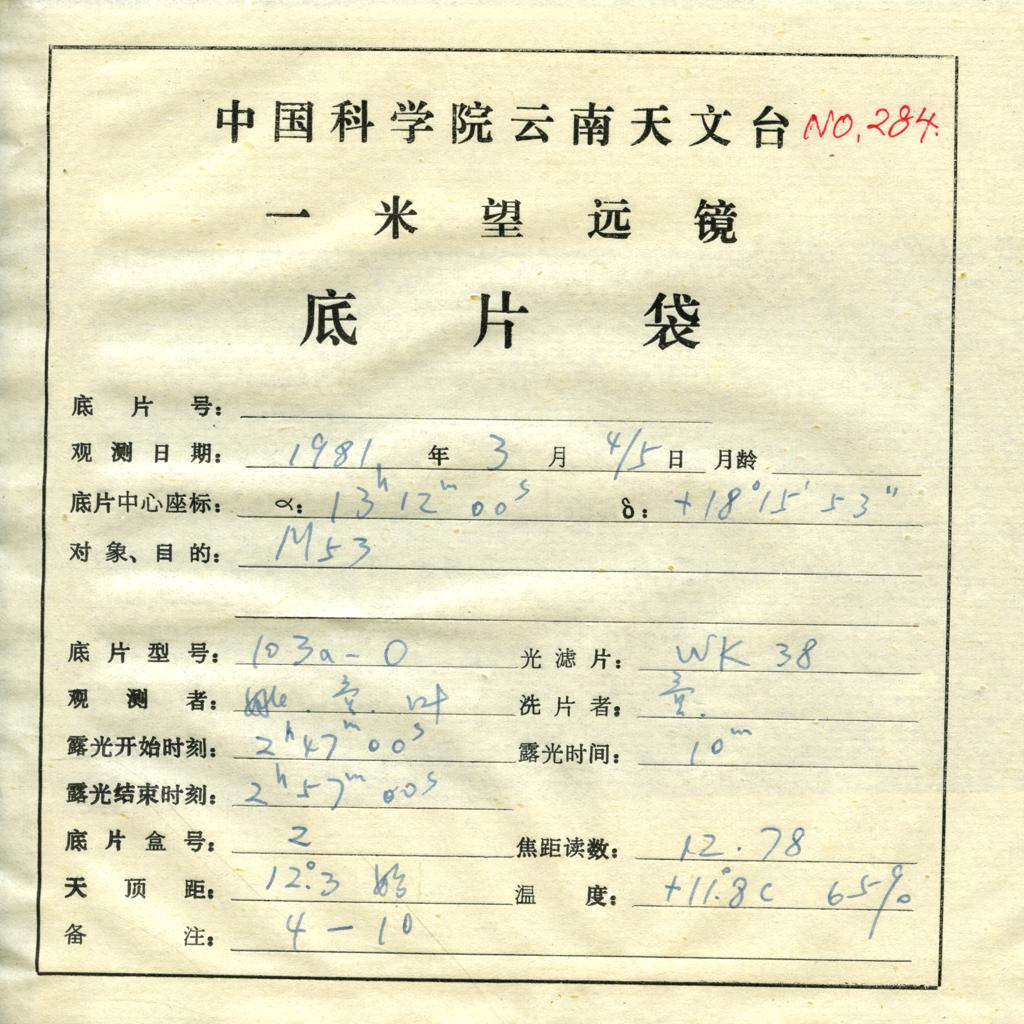 中国科学院云南天文台 NO.284.
一米望远镜
底片袋
底片号:
观测日期: 1981 年 3 月 4/5 日 月龄
底片中心座标: α: 13h 12m 00s δ: +18° 15' 53"
对象、目的: M53
底片型号: 103a-O 光滤片: WK 38
观测者: 叶 洗片者:
露光开始时刻: 2h 47m 00s 露光时间: 10m
露光结束时刻: 2h 57m 00s
底片盒号: 2 焦距读数: 12.78
天顶距: 12°.3 始 温度: +11°.8C 65%
备注: 4-10